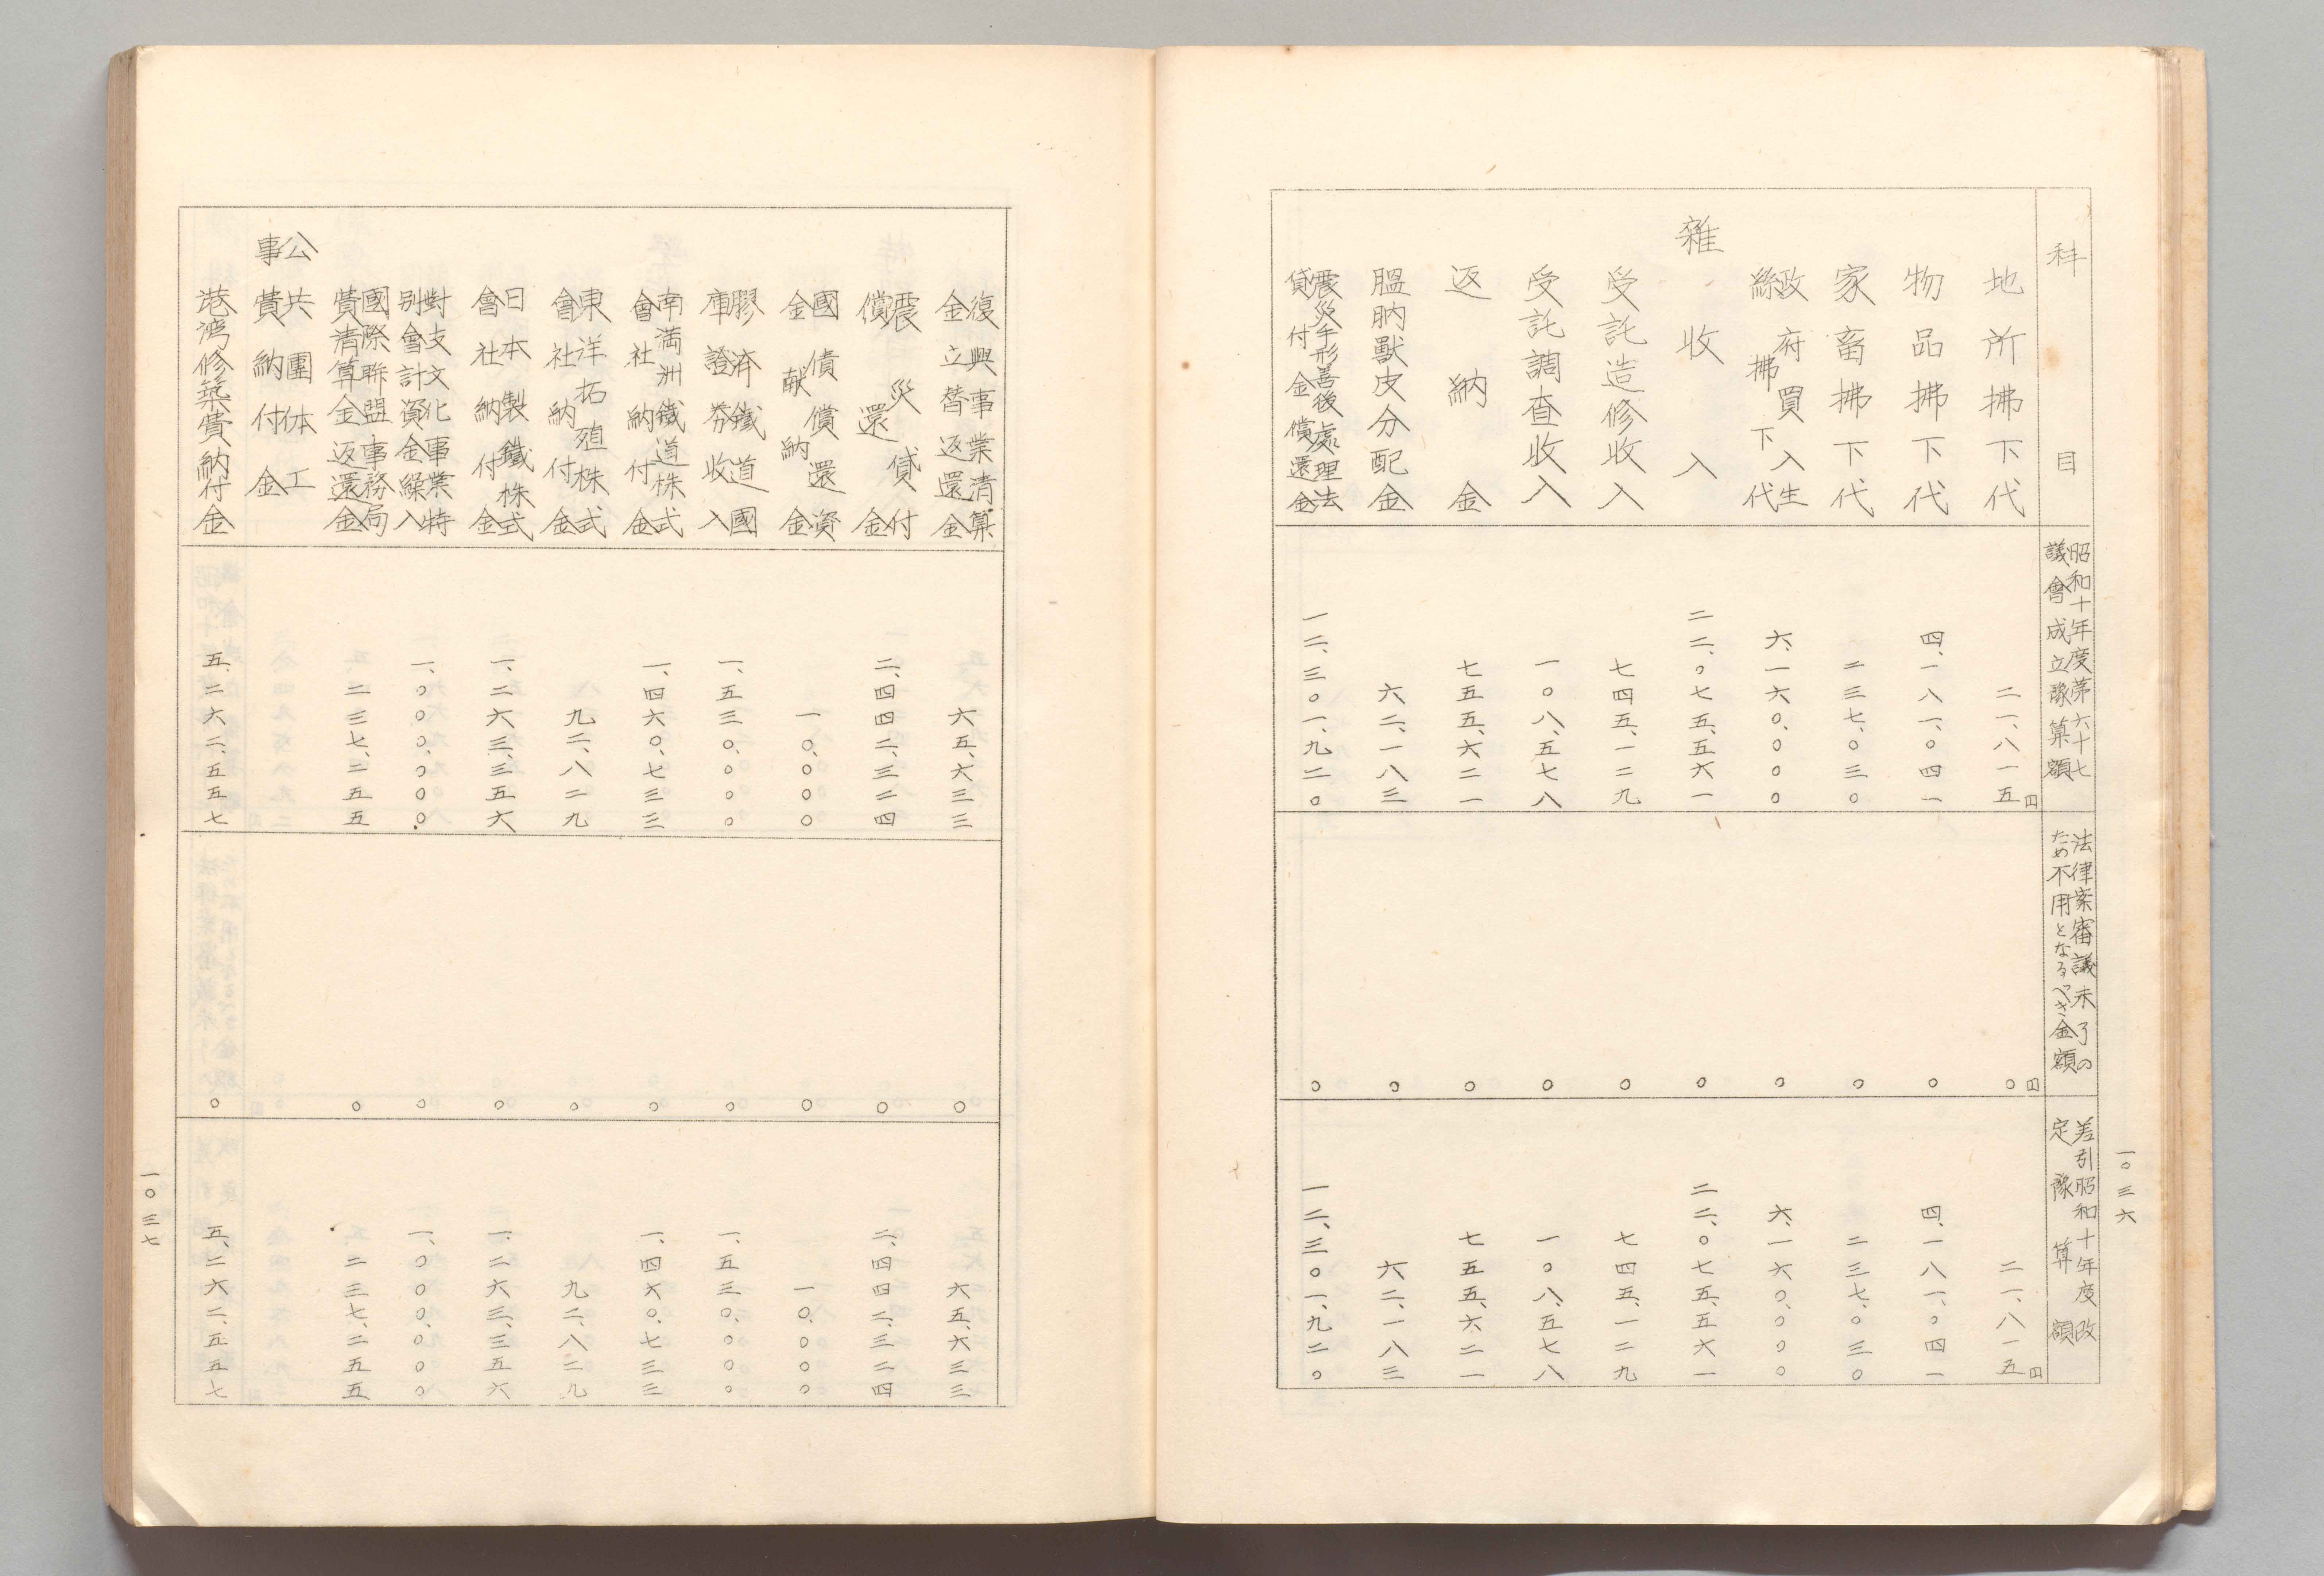 一〇三六
科目
昭和十年度第六十七
議會成立豫算額
法律案審議未了の
ため不用となるべき金額
差引昭和十年度改
定豫算額
地所拂下代
二一、八一五円
〇円
二一、八一五円
物品拂下代
四、一八一、〇四一
〇
四、一八一、〇四一
家畜拂下代
二三七、〇三〇
〇
二三七、〇三〇
政府買入生
絲拂下代
六、一六〇、〇〇〇
〇
六、一六〇、〇〇〇
雜收入
二二、〇七五、五六一
〇
二二、〇七五、五六一
受託造修收入
七四五、一二九
〇
七四五、一二九
受託調査收入
一〇八、五七八
〇
一〇八、五七八
返納金
七五五、六二一
〇
七五五、六二一
膃肭獸皮分配金
六二、一八三
〇
六二、一八三
震災手形善後處理法
貸付金償還金
一二、三〇一、九二〇
〇
一二、三〇一、九二〇
復興事業清算
金立替返還金
六五、六三三
〇
六五、六三三
震災貸付
償還金
二、四四二、三二四
〇
二、四四二、三二四
國債償還資
金献納金
一〇、〇〇〇
〇
一〇、〇〇〇
膠濟鐵道國
庫證券收入
一、五三〇、〇〇〇
〇
一、五三〇、〇〇〇
南満洲鐵道株式
會社納付金
一、四六〇、七三三
〇
一、四六〇、七三三
東洋拓殖株式
會社納付金
九二、八二九
〇
九二、八二九
日本製鐵株式
會社納付金
一、二六三、三五六
〇
一、二六三、三五六
對支文化事業特
別會計資金繰入
一、〇〇〇、〇〇〇
〇
一、〇〇〇、〇〇〇
國際聯盟事務局
費清算金返還金
二三七、二五五
〇
二三七、二五五
公共團体工
事費納付金
港湾修築費納付金
五、二六二、五五七
〇
五、二六二、五五七
一〇三七